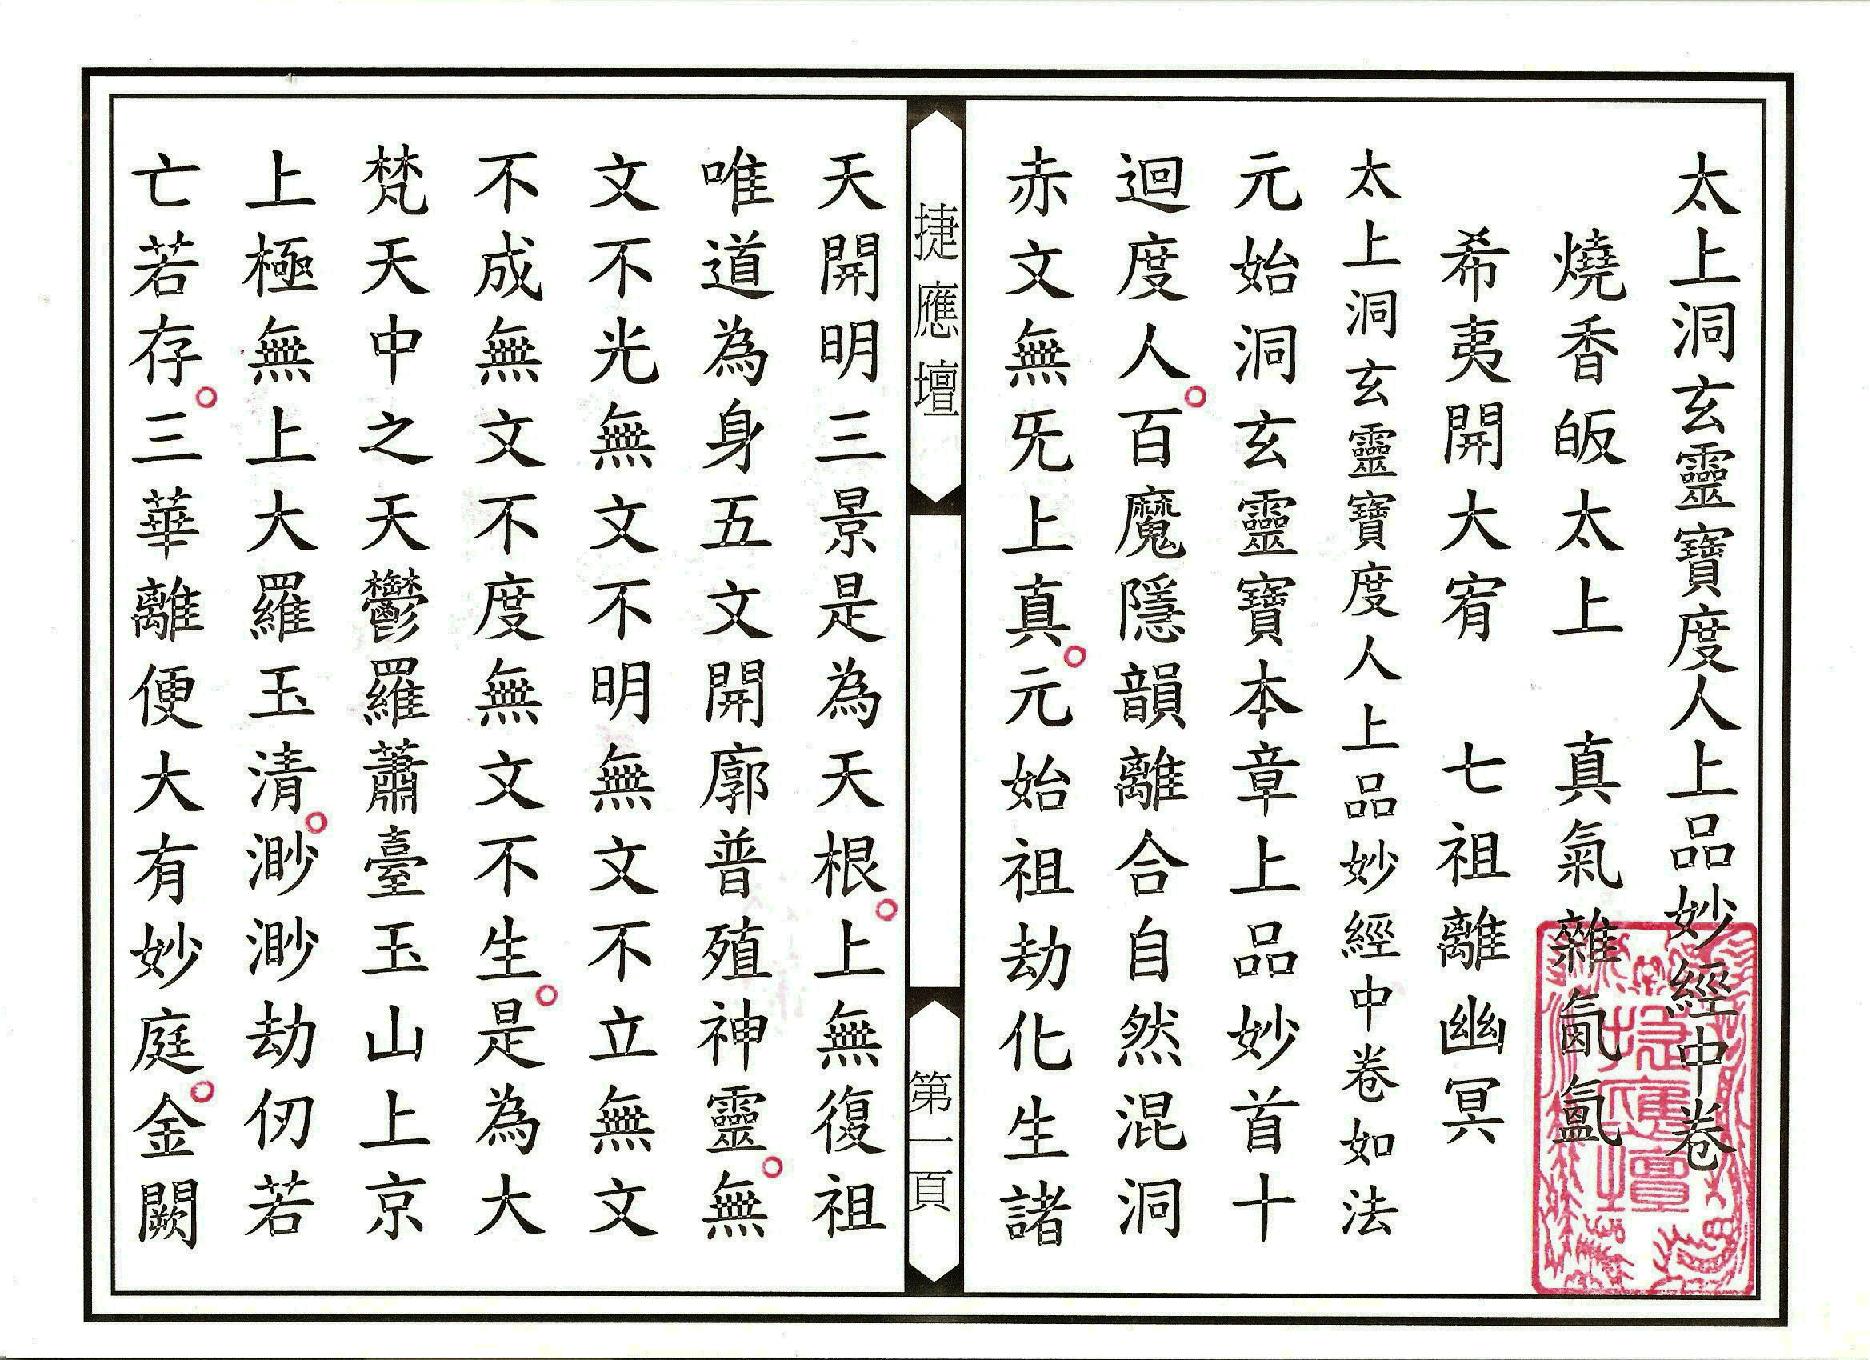 太上洞玄靈寶度人上品妙經中卷
燒香皈太上　真氣雜氤氳
希夷開大宥　七祖離幽冥
太上洞玄靈寶度人上品妙經中卷如法
元始洞玄靈寶本章上品妙首十
迴度人。百魔隱韻離合自然混洞
赤文無旡上真。元始祖劫化生諸
捷應壇
第一頁
天開明三景是為天根。上無復祖
唯道為身五文開廓普殖神靈。無
文不光無文不明無文不立無文
不成無文不度無文不生。是為大
梵天中之天鬱羅蕭臺玉山上京
上極無上大羅玉清。渺渺劫仞若
亡若存。三華離便大有妙庭。金闕
捷應壇